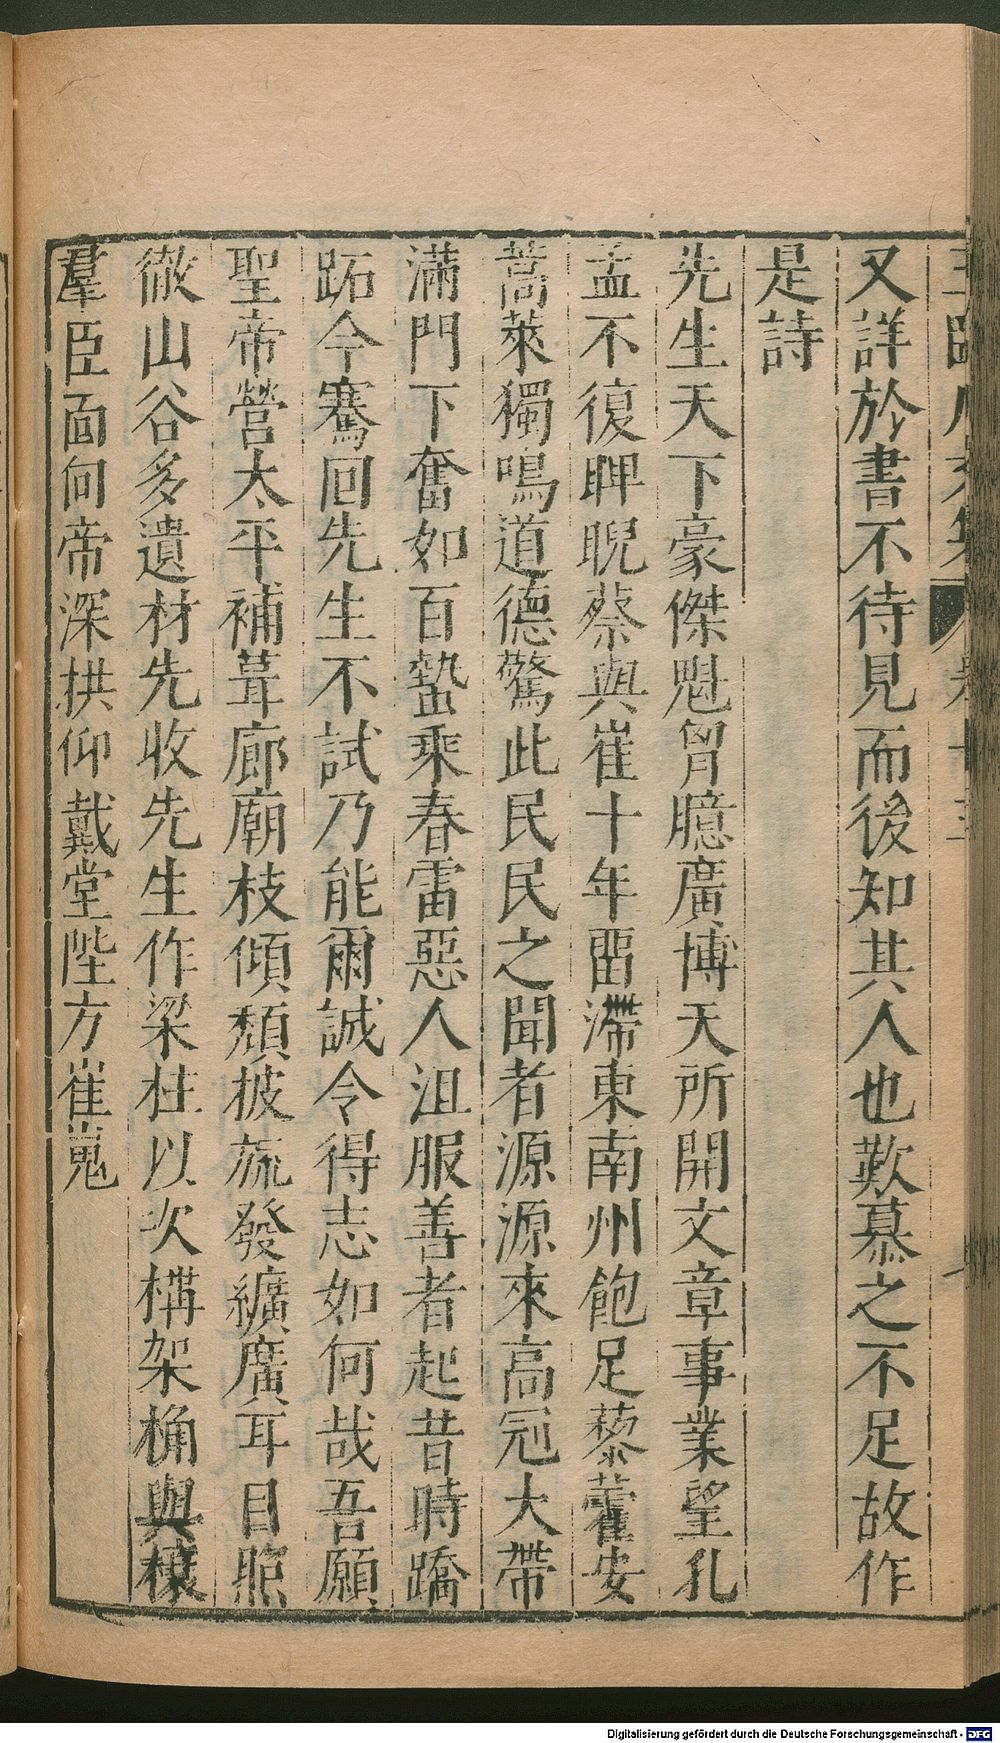 又詳於書不待見而後知其人也歎慕之不足故作
是詩
先生天下豪傑魁胷臆廣博天所開文章事業望孔
孟不復睥睨蔡與崔十年畱滯東南州飽足藜藿安
蒿萊獨鳴道德驚此民民之聞者源源來高冠大帶
滿門下奮如百蟄乘春雷惡人沮服善者起昔時蹻
跖今騫回先生不試乃能爾誠令得志如何哉吾願
聖帝營太平補葺廊廟枝傾頹披旒發纊廣耳目照
徹山谷多遺材先收先生作梁柱以次構架桷與榱
羣臣面向帝深拱仰戴堂陛方崔嵬
Digitalisierung gefördert durch die Deutsche Forschungsgemeinschaft - DFG